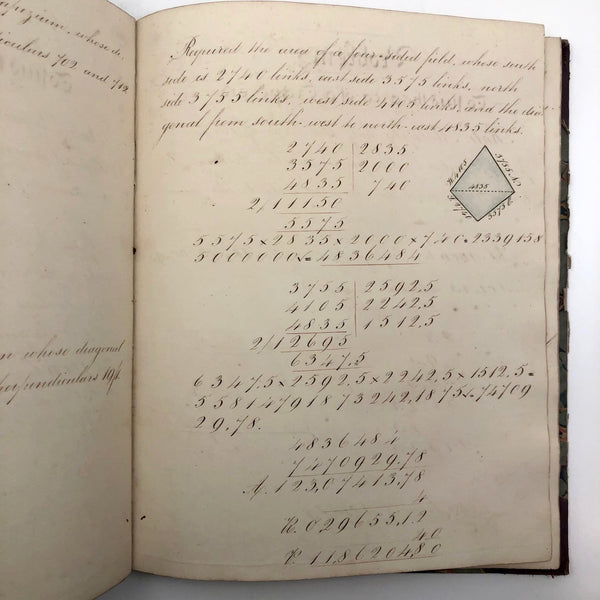 pezium, whose di-
diculars 702 and 712
n whose diagonal
perpendiculars 191.
Required the area of a four-sided field, whose south
side is 2740 links, east side 3575 links, north
side 3755 links, west side 4105 links, and the dia-
gonal from south-west to north-east 4835 links.
2740 | 2835
3575 | 2000
4835 | 740
2/11150
5575
5575 × 2835 × 2000 × 740 = 2339158
5000000 √ = 4836484
4835
3755 | 2592,5
4105 | 2242,5
4835 | 1512,5
2/12695
6347,5
6347,5 × 2592,5 × 2242,5 × 1512,5 =
55814791873242,1875 √ = 74709
29,78.
4836484
7470929,78
A. 123,07413,78
4
R. 029655,12
40
P. 11,8620480